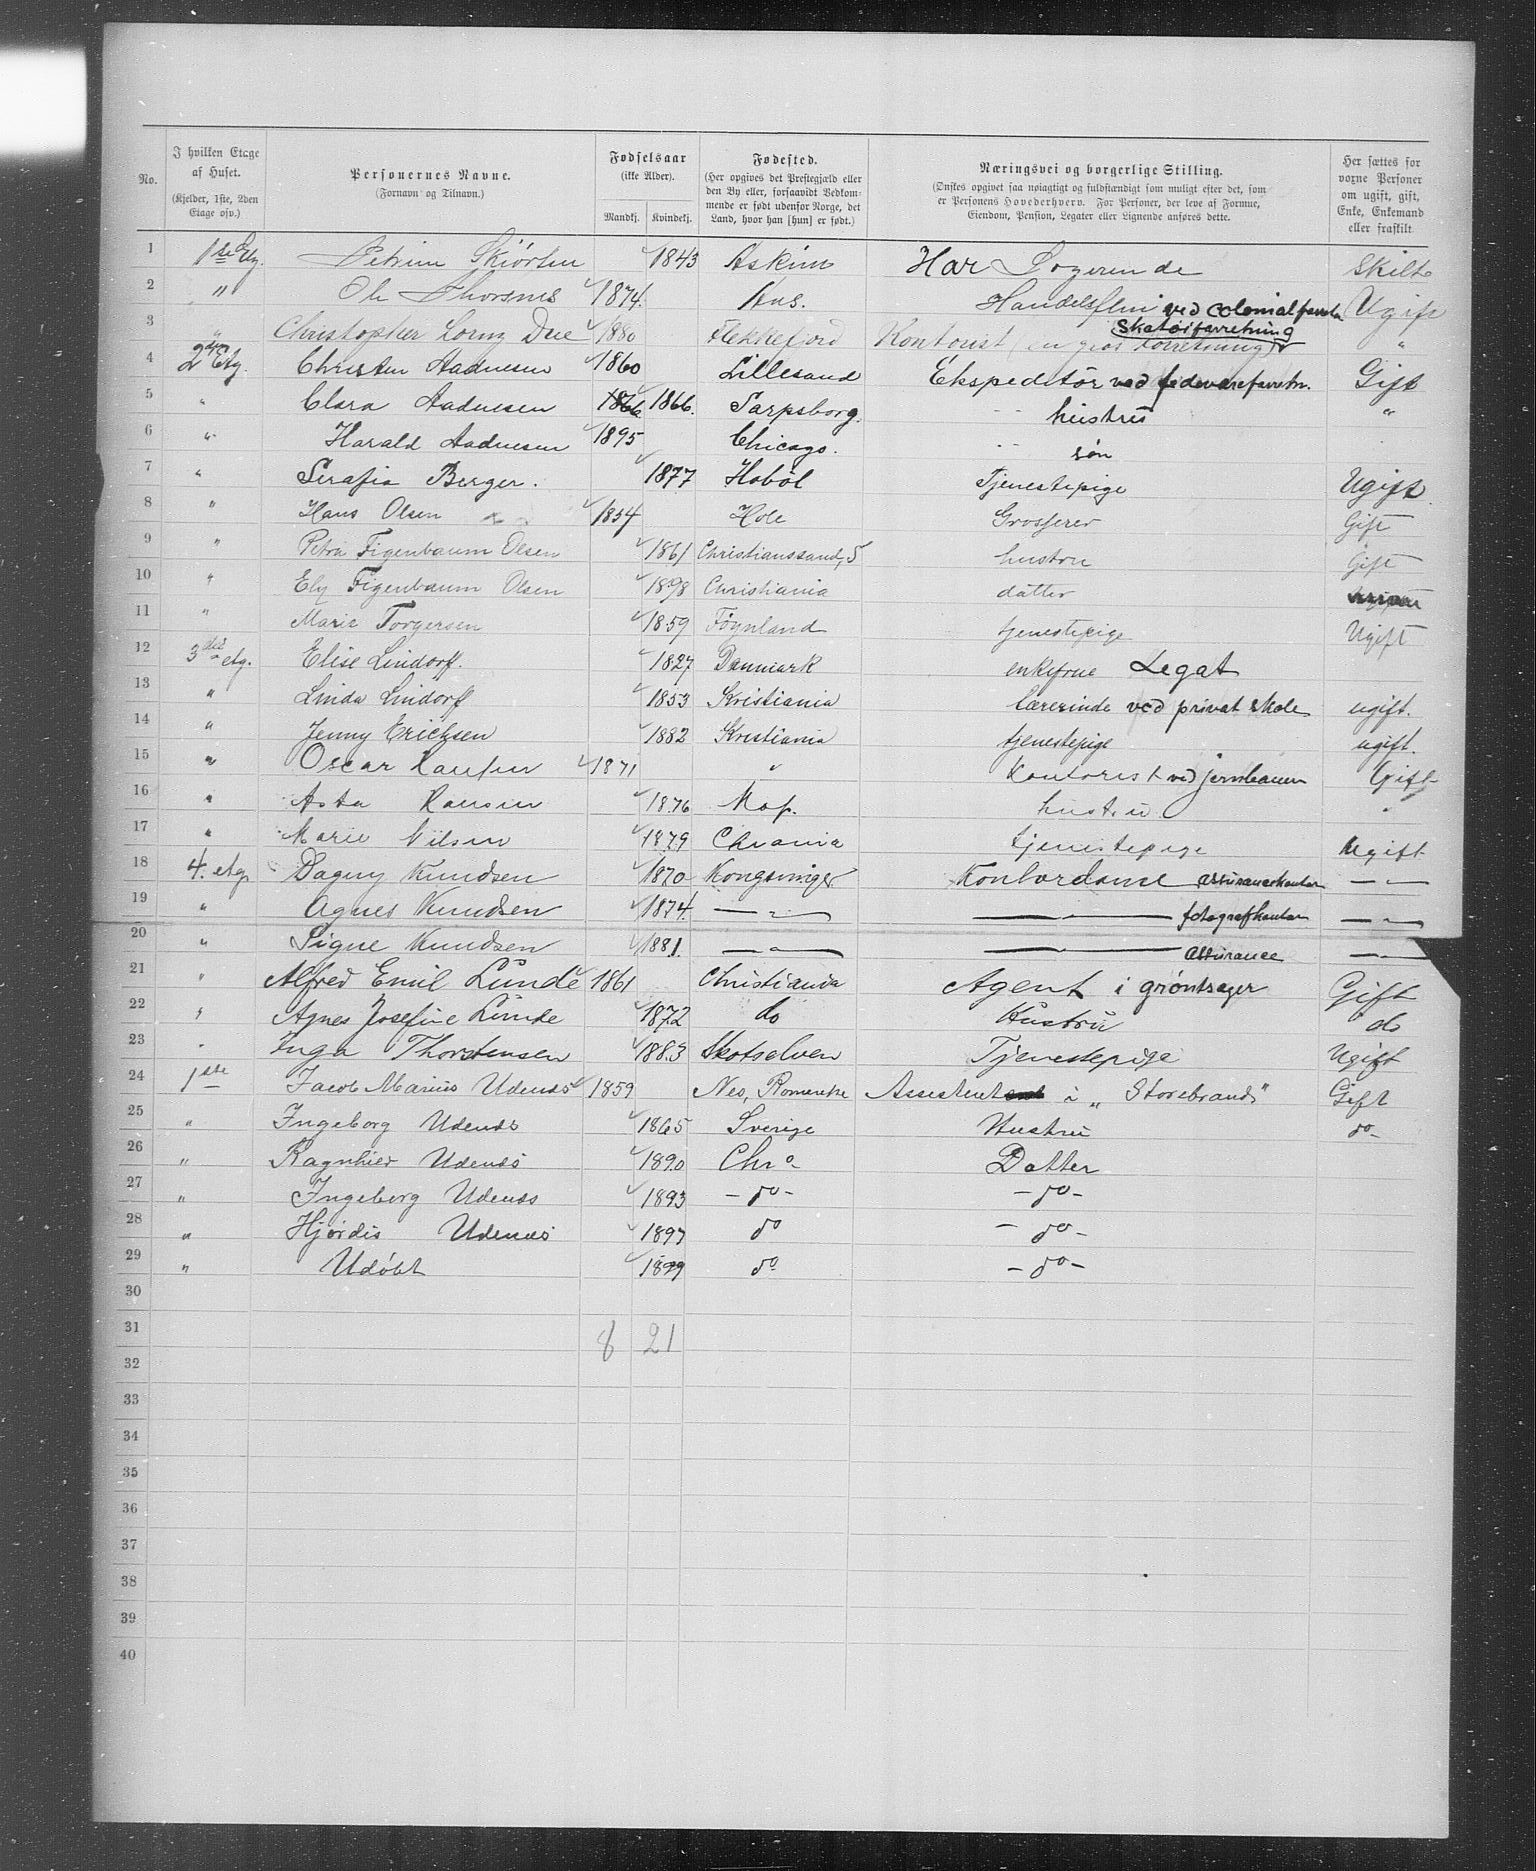 No. | I hvilken Etage af Huset. (Kjelder, 1ste, 2den Etage osv.) | Personernes Navne. (Fornavn og Tilnavn.) | Fødselsaar (ikke Alder). Mandkj. | Kvindekj. | Fødested. (Her opgives det Prestegjæld eller den By eller, forsaavidt Vedkommende er født udenfor Norge, det Land, hvor han [hun] er født.) | Næringsvei og borgerlige Stilling. (Ønskes opgivet saa nøiagtigt og fuldstændigt som muligt efter det, som er Personens Hovederhverv. For Personer, der leve af Formue, Eiendom, Pension, Legater eller Lignende anføres dette. | Her sættes for voxne Personer om ugift, gift, Enke, Enkemand eller fraskilt
1 | 1ste Etg. | Petrine Skiørten | 1843 | Askim | Har Logerende | Skilt
2 | " | Ole Thorsnes | 1874. | Aas. | Handelsflm ved colonialforretn | Ugift
3 | " | Christopher Lorny Due | 1880 | Flekkefjord | Kontorist (en gros forretning) Skotøiforretning | "
4 | 2den Etg. | Christen Aadnesen | 1860 | Lillesand | Ekspeditør ved fedevareforretn. | Gift
5 | " | Clara Aadnesen | 1866 | 1866. | Sarpsborg. | hustru | "
6 | " | Harald Aadnesen | 1895 | Chicago. | søn
7 | " | Serafia Berger. | 1877 | Hobøl | Tjenestepige | Ugift
8 | " | Hans Olsen | 1854 | Hole | Grosserer | Gift
9 | " | Petra Figenbaum Olsen | 1861 | Christianssand, S | hustru | Gift
10 | " | Ely Figenbaum Olsen | 1898 | Christiania | datter
11 | " | Marie Torgersen | 1859 | Føynland | tjenestepige | Ugift
12 | 3die etg. | Elise Lindorff. | 1827 | Danmark | enkefrue Legat
13 | " | Linda Lindorff | 1853 | Kristiania | lærerinde ved privat skole | ugift.
14 | " | Jenny Erichsen | 1882 | Kristiania | tjenestepige | ugift.
15 | " | Oscar Hansen | 1871 | " | Kontorist ved jernbanen | Gift
16 | " | Asta Hansen | 1876 | Mos. | hustru | "
17 | " | Marie Nilsen | 1879 | Chrania | tjenestepige | Ugift
18 | 4. etg. | Dagny Knudsen | 1870 | Kongsvinger | Kontordame assurancekontor | — " —
19 | " | Agnes Knudsen | 1874. | — " — | — " — fotografkontor | — " —
20 | " | Signe Knudsen | 1881. | — " — | — " — assurance | — " —
21 | " | Alfred Emil Lunde | 1861 | Christiania | Agent i grøntsager | Gift
22 | " | Agnes Josefine Lunde | 1872 | do | Hustru | do
23 | " | Inga Thorstensen | 1883 | Skotselven | Tjenestepige | Ugift
24 | 1ste | Jacob Marius Udenæs | 1859 | Nes, Romerike | Assistent i „Storebrand" | Gift
25 | " | Ingeborg Udenæs | 1865 | Sverige | Hustru | do
26 | " | Ragnhild Udenæs | 1890 | Chra | Datter
27 | " | Ingeborg Udenæs | 1893 | - do - | - do -
28 | " | Hjørdis Udenæs | 1897 | do | - do -
29 | " | Udøbt | 1899 | do | - do -
30
31 | 8 | 21
32
33
34
35
36
37
38
39
40